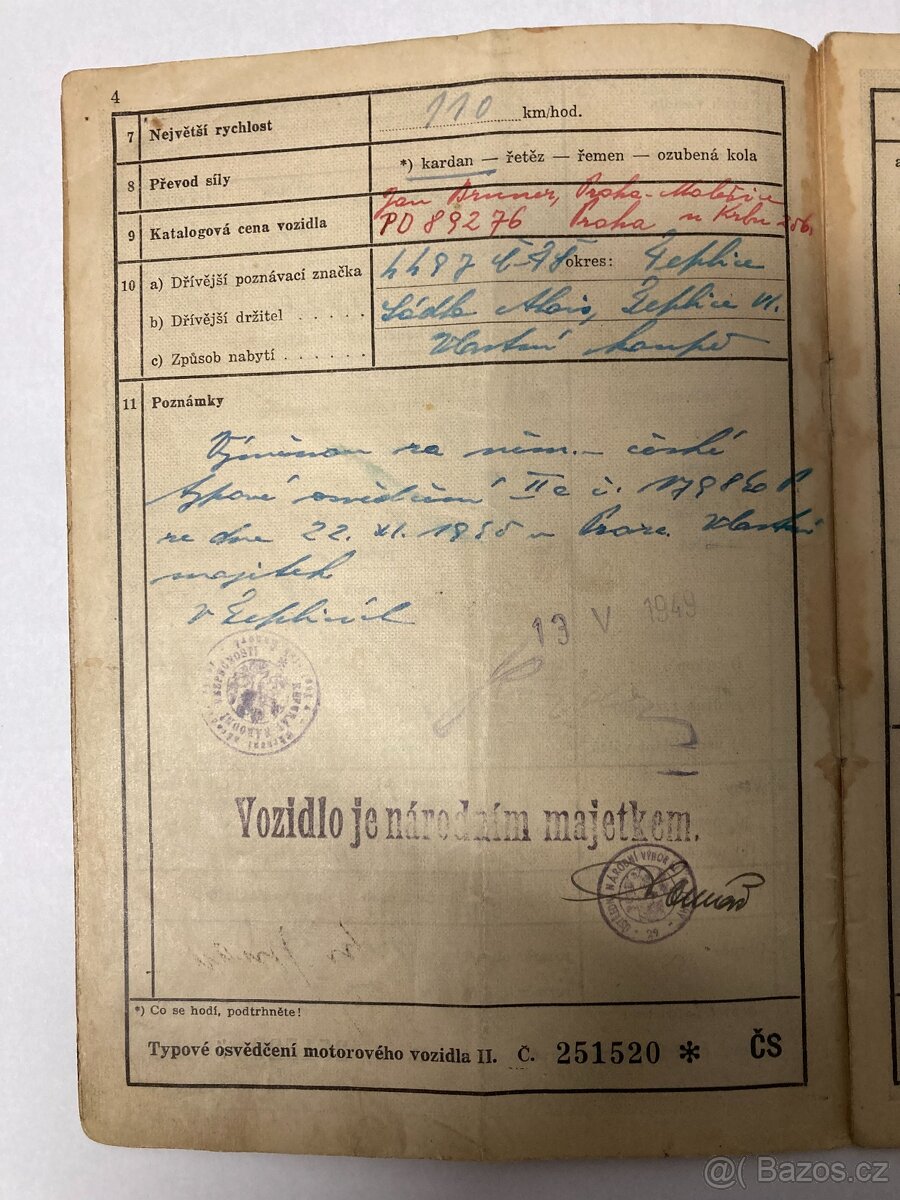 4
7 Největší rychlost 110 km/hod.
8 Převod síly *) kardan — řetěz — řemen — ozubená kola
Jan Bruner, Praha-Malešice
9 Katalogová cena vozidla PD 89276 Praha u Krbu
10 a) Dřívější poznávací značka okres: Teplice
b) Dřívější držitel . . . . . Alois, Teplice VI.
c) Způsob nabytí . . . . . . Vlastní koupě
11 Poznámky
Výměnou za něm. – české
typové osvědčení II č.
ze dne 22. XI. v Praze. Vlastní
majitek
V Teplicích
13 V 1949
BEZPEČNOSTI
NÁRODNÍ
Vozidlo je národním majetkem.
NÁRODNÍ VÝBOR
29
*) Co se hodí, podtrhněte!
Typové osvědčení motorového vozidla II. Č. 251520 * ČS
@( Bazos.cz